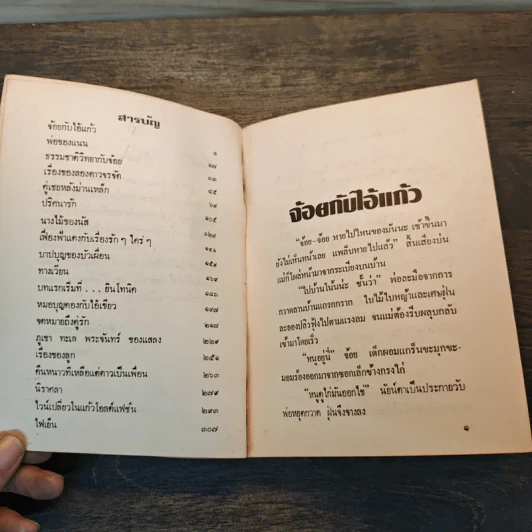 สารบัญ
จ้อยกับไอ้แก้ว ๑
พ่อของแนน ๑๗
ธรรมชาติวิทยากับจ้อย ๓๓
เรื่องของสองดาวจรจัด ๔๕
คู่เขยหลังม่านเหล็ก ๖๔
ปริศนารัก ๑๐๕
นางไม้ของนัส
เฟื่องฟ้าแดงกับเรื่องรัก ๆ ใคร่ ๆ
บาปบุญของบัวเผื่อน
ทางเวียน
บทแรกเริ่มที่ . . . อินโทนิค
หมอบุญตองกับไอ้เขียว
จดหมายถึงคู่รัก ๒๑๗
ภูเขา ทะเล พระจันทร์ ของแสลง
เรื่องของลูก ๒๕๑
คืนหนาวที่เหลือแต่ดาวเป็นเพื่อน ๒๖๓
นิราศลา ๒๗๙
ไวน์เปลี่ยวในแก้วโอลด์แฟชั่น ๒๙๓
ไฟเย็น ๓๐๗
จ้อยกับไอ้แก้ว
“จ้อย-จ้อย หายไปไหนของมันนะ เช้าขึ้นมา
ยังไม่เห็นหน้าเลย แพล็บหายไปแล้ว” สิ้นเสียงบ่น
แม่ก็โผล่หน้าออกมาจากระเบียงบนบ้าน
“ไปบ้านโน้นน่ะ ชั้นว่า” พ่อละมือจากการ
กวาดลานบ้านแกรกกราก ใบไม้ใบหญ้าและเศษฝุ่น
ละอองปลิวฟุ้งไปตามแรงลม จนแม่ต้องรีบผลุบกลับ
เข้ามาโดยเร็ว
“หนูอยู่นี่” จ้อย เด็กผอมแกร็นขะมุกขะ-
มอมร้องออกมาจากซอกเล็กข้างกรงไก่
“หนูดูไก่มันออกไข่” นัยน์ตาเป็นประกายวับ
พ่อหยุดกวาด ฝุ่นจึงจางลง
๑